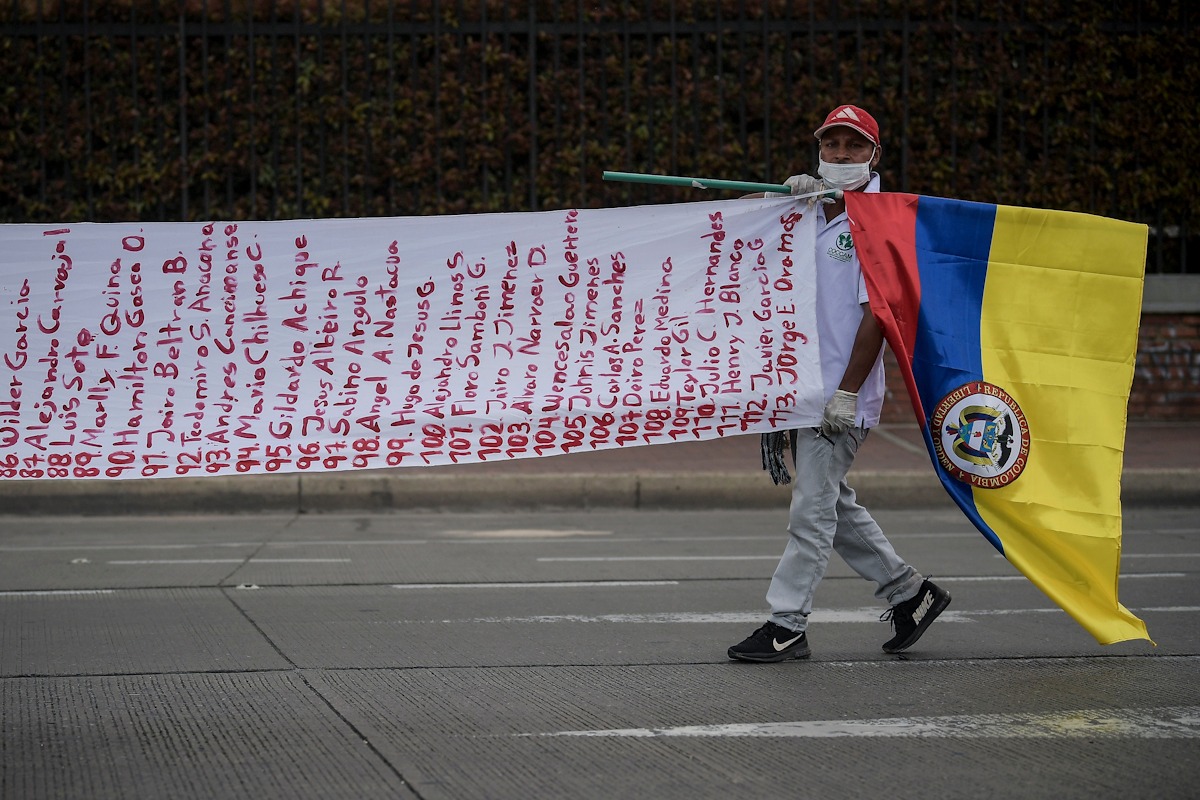 86. Wilder Garcia
87. Alejandro Carvajal
88. Luis Soto
89. Marlly F. Quina
90. Hamilton Gasca O.
91. Jairo Beltran B.
92. Teodomiro S. Anacana
93. Andres Cancimanse
94. Mario Chilhueso C.
95. Gildardo Achique
96. Jesus Albeiro R.
97. Sabino Angulo
98. Angel A. Nastacua
99. Hugo de Jesus G.
100. Alejandro Llinas S.
101. Floro Samboni G.
102. Jairo J. Jimenez
103. Alvaro Narvaez D.
104. Wencesalao Guerrero
105. Johnis Jimenes
106. Carlos A. Sanches
107. Doiro Perez
108. Eduardo Medina
109. Taylor Gil
110. Julio C. Hernandes
111. Henry J. Blanco
112. Javier Garcia G
113. Jorge E. Oramas
COCCAM
REPUBLICA DE COLOMBIA
LIBERTAD
NIKE